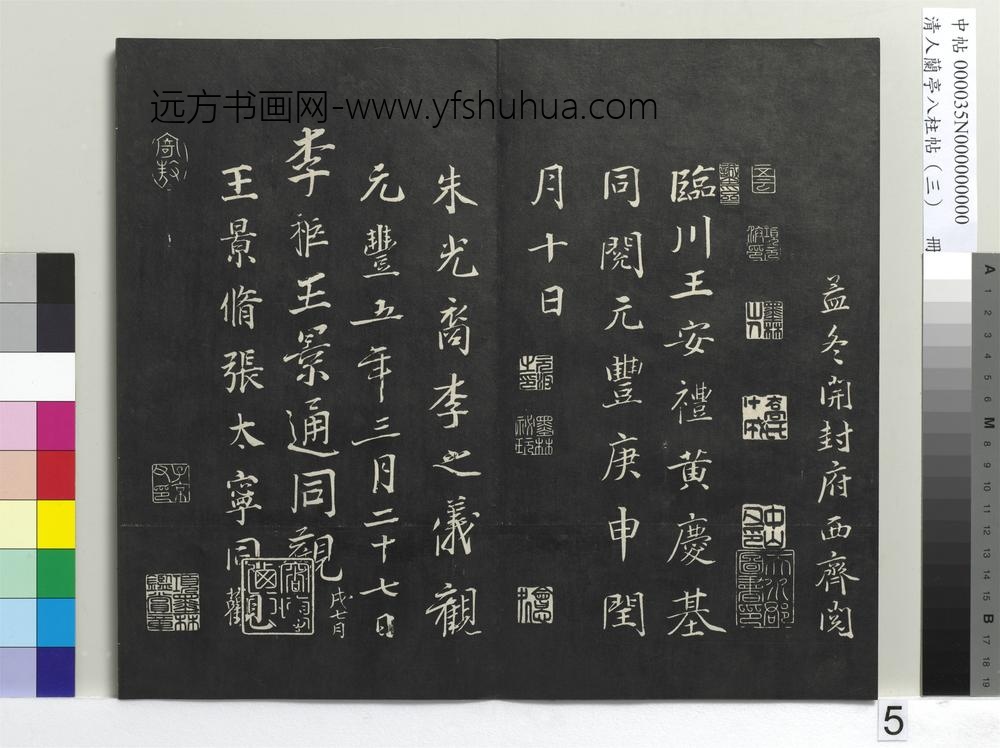 远方书画网-www.yfshuhua.com
中帖 000035N000000000
清人蘭亭八柱帖（三） 冊
益冬開封府西齊閲
臨川王安禮黃慶基
同閱元豐庚申閏
月十日
朱光裔李之儀觀
元豐五年三月二十七日
李秬王景通同觀
戌七月
王景脩張太寧同觀
墨林山人
子京父印
項墨林鑑賞章
A 1 2 3 4 5 6 M 8 9 10 11 12 13 14 15 B 17 18 19
5